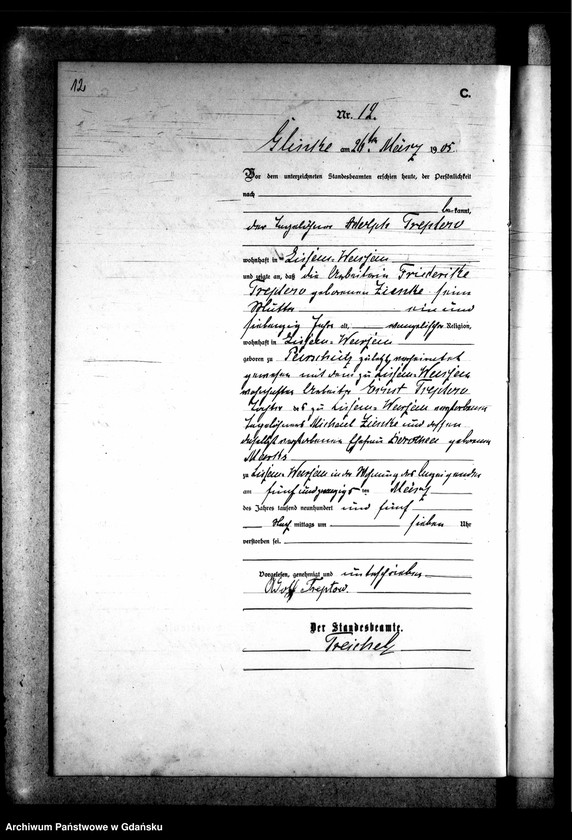 12
C.
Nr. 12.
Glinke am 26ten März 1905.
Vor dem unterzeichneten Standesbeamten erschien heute, der Persönlichkeit
nach
bekannt,
der Tagelöhner Adolph Treptow
wohnhaft in
und zeigte an, daß die Arbeiterin Friederike
Treptow geborenen Zienke seine
Mutter ein und
siebenzig Jahre alt, evangelischer Religion,
wohnhaft in
geboren zu zuletzt verheiratet
gewesen mit dem zu
wohnhaften Arbeiter Ernst Treptow
Tochter des zu verstorbenen
Tagelöhners Michael Zienke und dessen
daselbst verstorbenen Ehefrau Dorothea geborenen
zu in der Wohnung des Anzeigenden
am fünfundzwanzigsten März
des Jahres tausend neunhundert und fünf
Nach mittags um sieben Uhr
verstorben sei.
Vorgelesen, genehmigt und unterschrieben
Adolf Treptow.
Der Standesbeamte.
Treichel
Archiwum Państwowe w Gdańsku